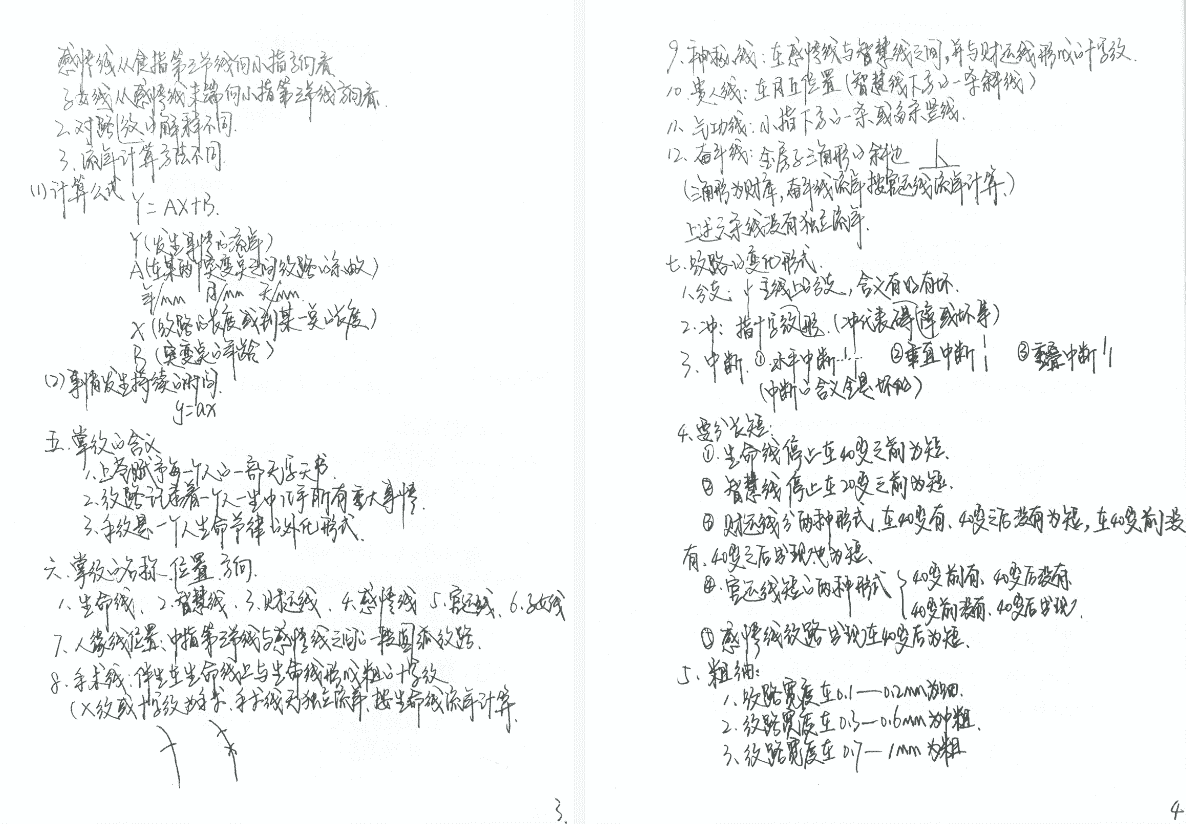 感情线从食指第三节线向小指方向看
子女线从感情线末端向小指第三节线方向看.
2.对路纹的解释不同.
3.流年计算方法不同.
(1)计算公式
Y=AX+B.
Y(发生事情的流年)
A(在某两个突变点之间纹路的系数)
年/mm 月/mm 天/mm.
X(纹路的长度或到某一点的长度)
B(突变点的年龄)
(2)事情发生持续的时间.
y=ax
五.掌纹的含义
1.上苍赋予每一个人的一部无字天书.
2.纹路记录着一个人一生中几乎所有重大事情.
3.手纹是一个人生命节律的外化形式.
六.掌纹的名称.位置.方向.
1.生命线、2.智慧线、3.财运线、4.感情线 5.官运线、6.子女线
7.人缘线位置:中指第三节线与感情线之间的一段圆弧纹路.
8.手术线:伴生在生命线上与生命线形成粗的十字纹
(X纹或十字纹为手术.手术线无独立流年.按生命线流年计算.
3.
9.神秘线:在感情线与智慧线之间,并与财运线形成的十字纹.
10.贵人线:在月丘位置(智慧线下方的一条斜线)
11.气功线:小指下方的一条或多条竖线.
12.奋斗线:金庫子三角形的斜边
(三角形为财库,奋斗线流年按官运线流年计算.)
上述六条线没有独立流年.
七.纹路的变化形式.
1.分支:主线上的分支,含义有好有坏.
2.冲:指十字纹形.(冲代表碍障或坏事)
3.中断.①水平中断 ②垂直中断 ③重叠中断
(中断的含义全是坏的)
4.要分长短:
①.生命线停止在40岁之前为短.
② 智慧线停止在20岁之前为短.
③ 财运线分两种形式、在40岁有、40岁之后没有为短,在40岁前没
有、40岁之后出现也为短.
④.官运线短的两种形式 40岁前有、40岁后没有
40岁前没有、40岁后出现
⑤ 感情线纹路出现在40岁后为短.
5.粗细:
1.纹路宽度在0.1—0.2mm为细.
2.纹路宽度在0.3—0.6mm为中粗.
3.纹路宽度在0.7—1mm为粗
4